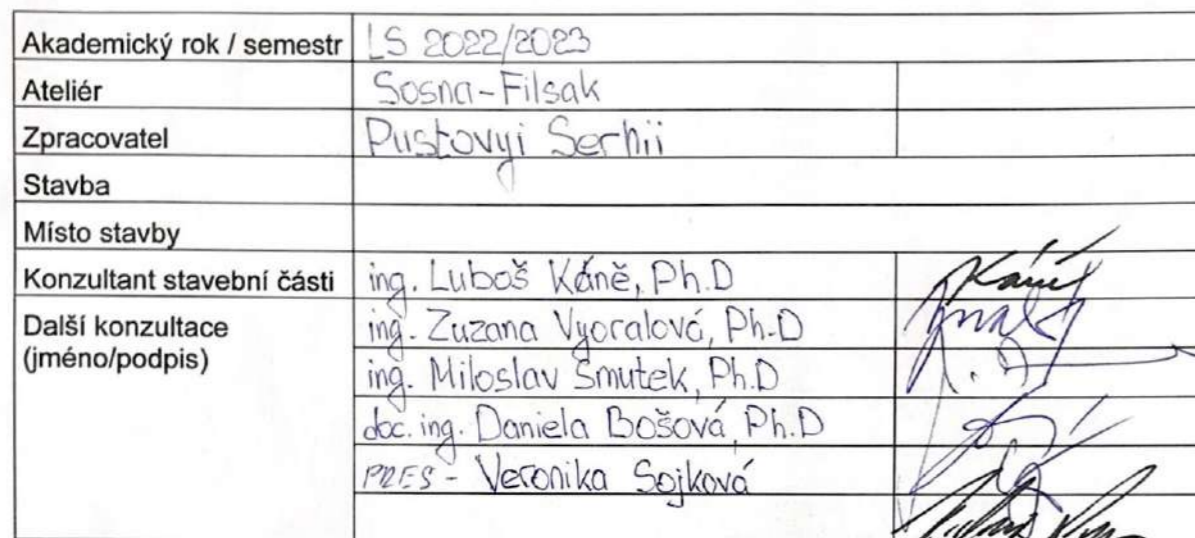 Akademický rok / semestr LS 2022/2023
Ateliér Sosna-Filsak
Zpracovatel Pustovyi Serhii
Stavba
Místo stavby
Konzultant stavební části ing. Luboš Káně, Ph.D Káně
Další konzultace ing. Zuzana Vyoralová, Ph.D
(jméno/podpis) ing. Miloslav Smutek, Ph.D
doc. ing. Daniela Bošová, Ph.D
PRES - Veronika Sojková